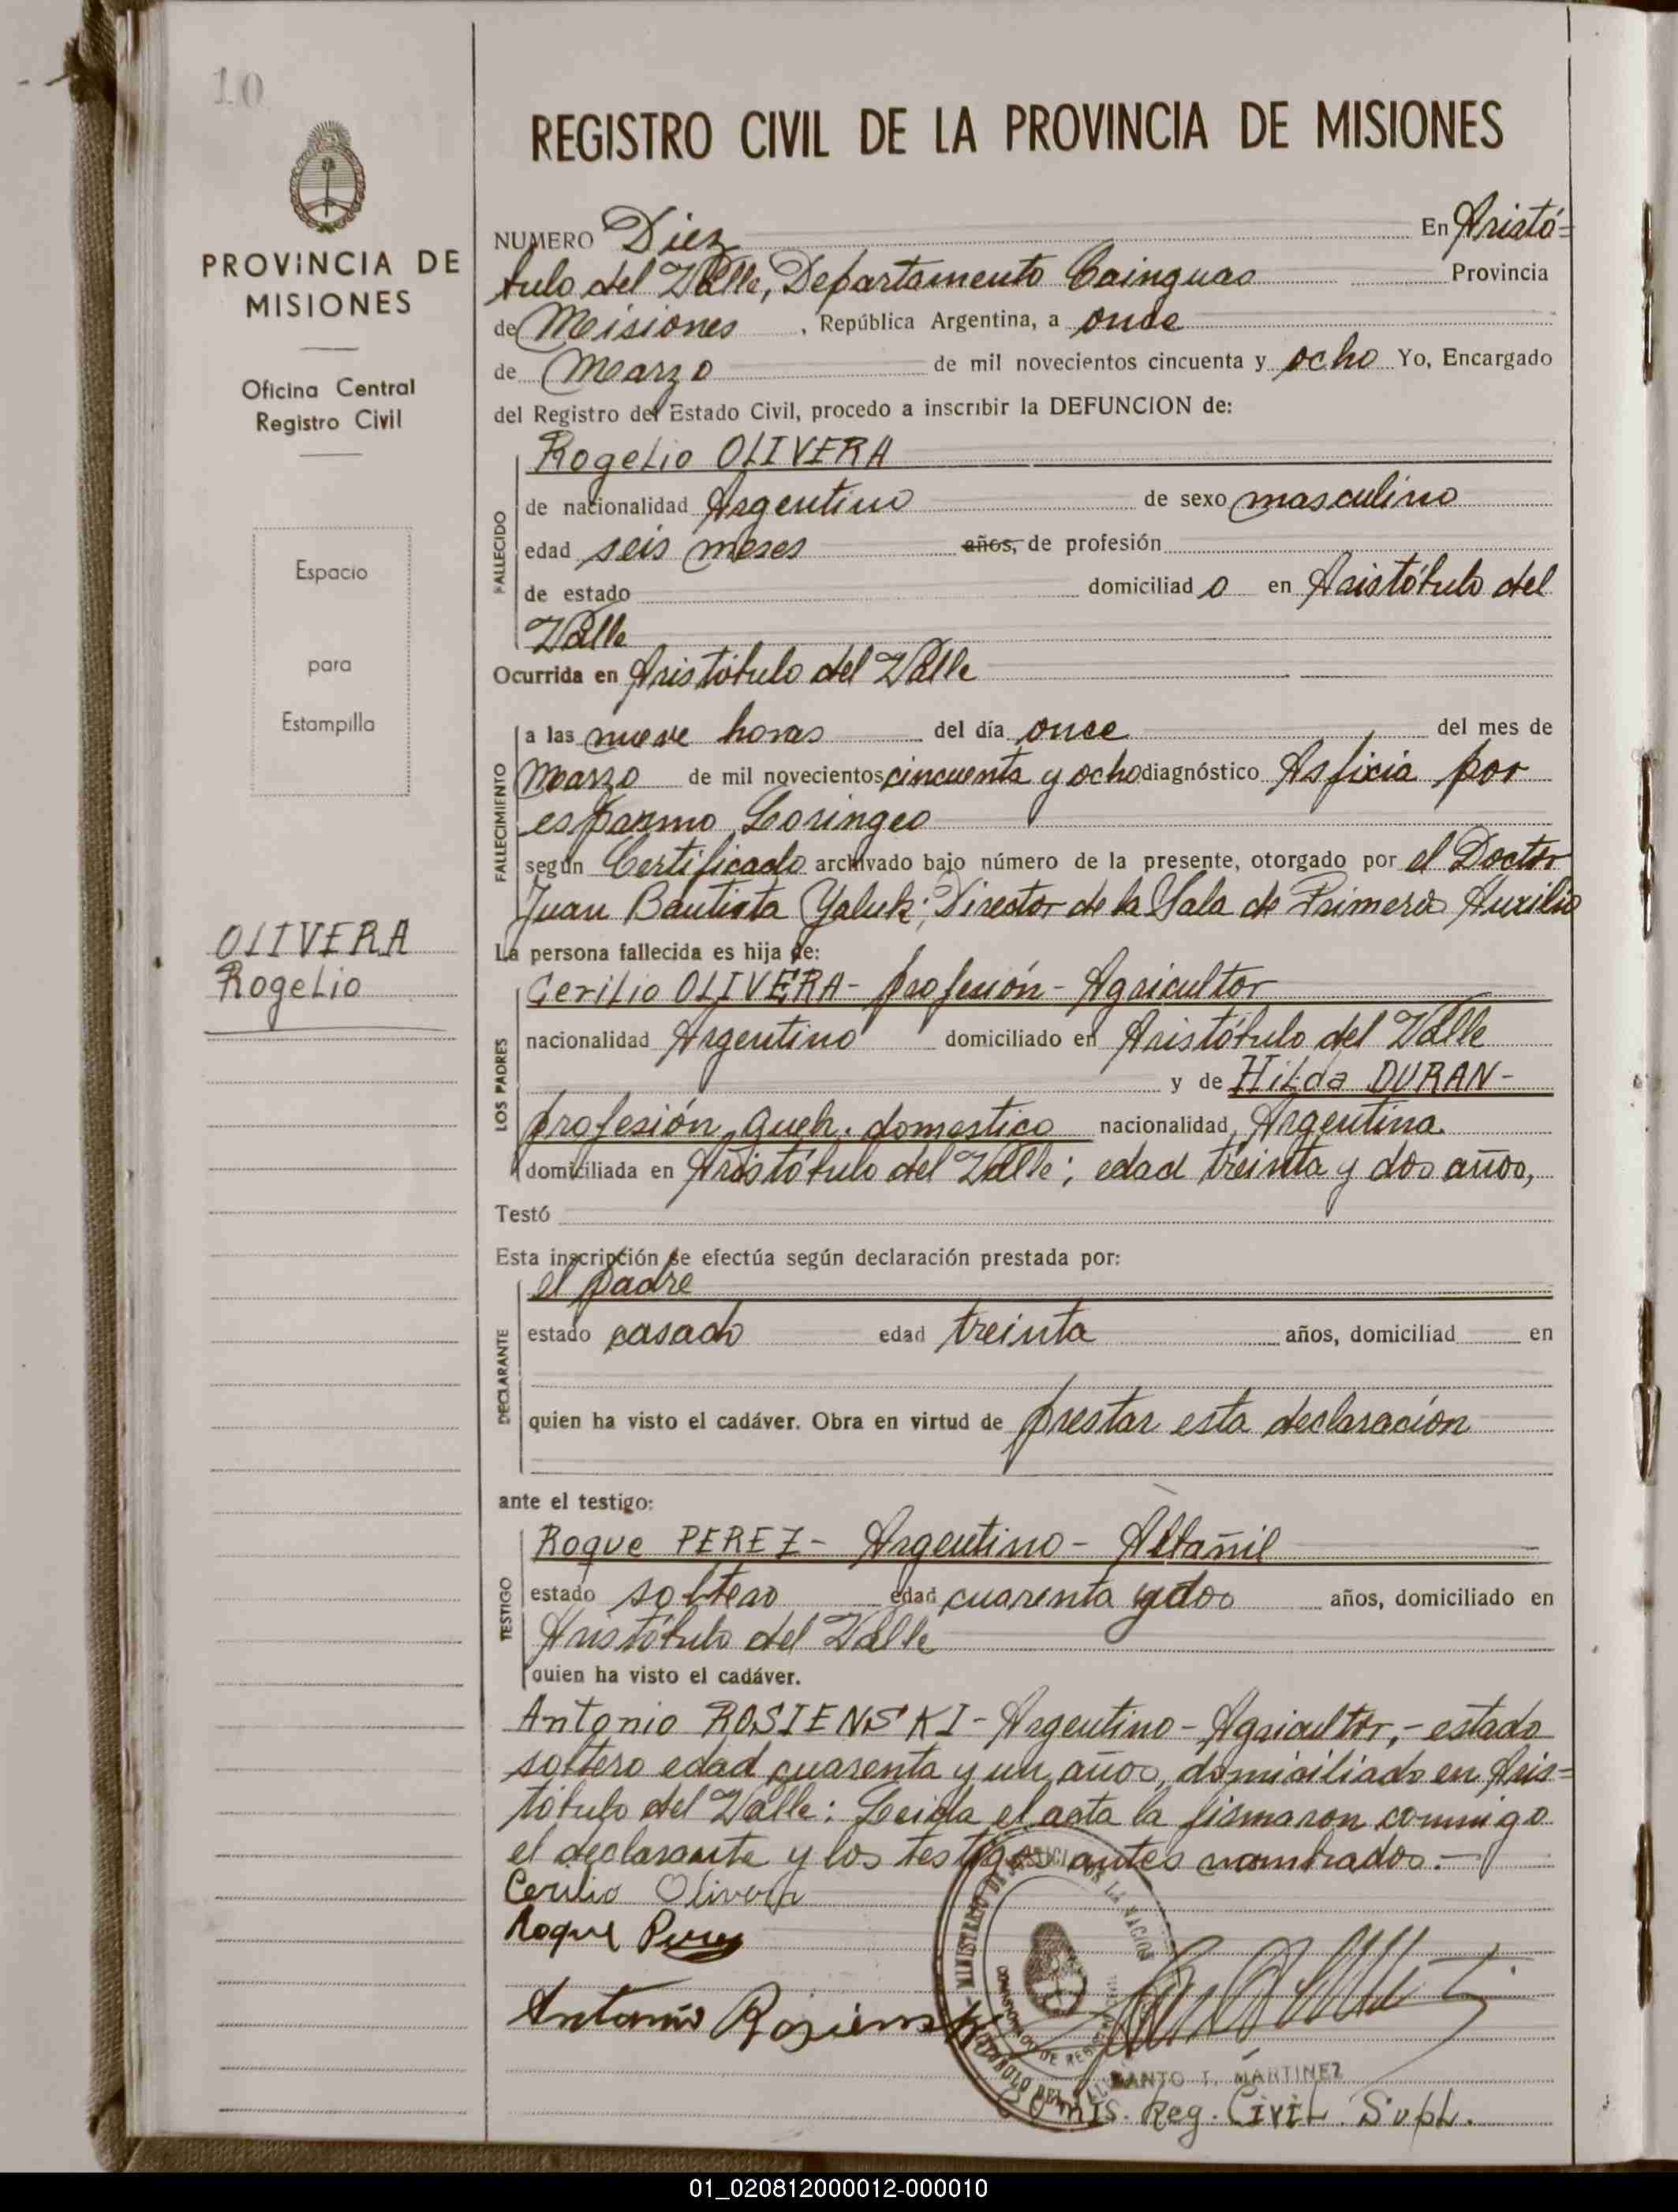 10
PROVINCIA DE
MISIONES
Oficina Central
Registro Civil
Espacio
para
Estampilla
OLIVERA
Rogelio
REGISTRO CIVIL DE LA PROVINCIA DE MISIONES
NUMERO Diez En Aristó=
bulo del Valle, Departamento Cainguas Provincia
de Misiones, República Argentina, a once
de Marzo de mil novecientos cincuenta y ocho Yo, Encargado
del Registro del Estado Civil, procedo a inscribir la DEFUNCION de:
FALLECIDO
Rogelio OLIVERA
de nacionalidad Argentino de sexo masculino
edad seis meses años, de profesión
de estado domiciliado en Aristóbulo del
Valle
Ocurrida en Aristóbulo del Valle
FALLECIMIENTO
a las nueve horas del día once del mes de
Marzo de mil novecientos cincuenta y ocho diagnóstico Asficia por
espasmo Loringeo
según Certificado archivado bajo número de la presente, otorgado por el Doctor
Juan Bautista Yaluk; Director de la Sala de Primeros Auxilio
La persona fallecida es hija de:
LOS PADRES
Cerilio OLIVERA- profesión - Agricultor
nacionalidad Argentino domiciliado en Aristóbulo del Valle
y de Hilda DURAN-
profesión, queh. domestico nacionalidad Argentina.
domiciliada en Aristóbulo del Valle; edad treinta y dos años,
Testó
Esta inscripción se efectúa según declaración prestada por:
DECLARANTE
el padre
estado casado edad treinta años, domiciliad en
quien ha visto el cadáver. Obra en virtud de prestar esta declaración
ante el testigo:
TESTIGO
Roque PEREZ- Argentino - Albañil
estado soltero edad cuarenta y dos años, domiciliado en
Aristóbulo del Valle
quien ha visto el cadáver.
Antonio ROSIENSKI - Argentino - Agricultor, - estado
soltero edad cuarenta y un años, domiciliado en Aris=
tóbulo del Valle: Leida el acta la firmaron conmigo
el declarante y los testigos antes nombrados. -
Cerilio Olivera
Roque Perez
Antonio Rosienski
MINISTERIO DE JUSTICIA DE LA NACION
SANTO T. MARTINEZ
Comis. Reg. Civil. Supl.
01_020812000012-000010